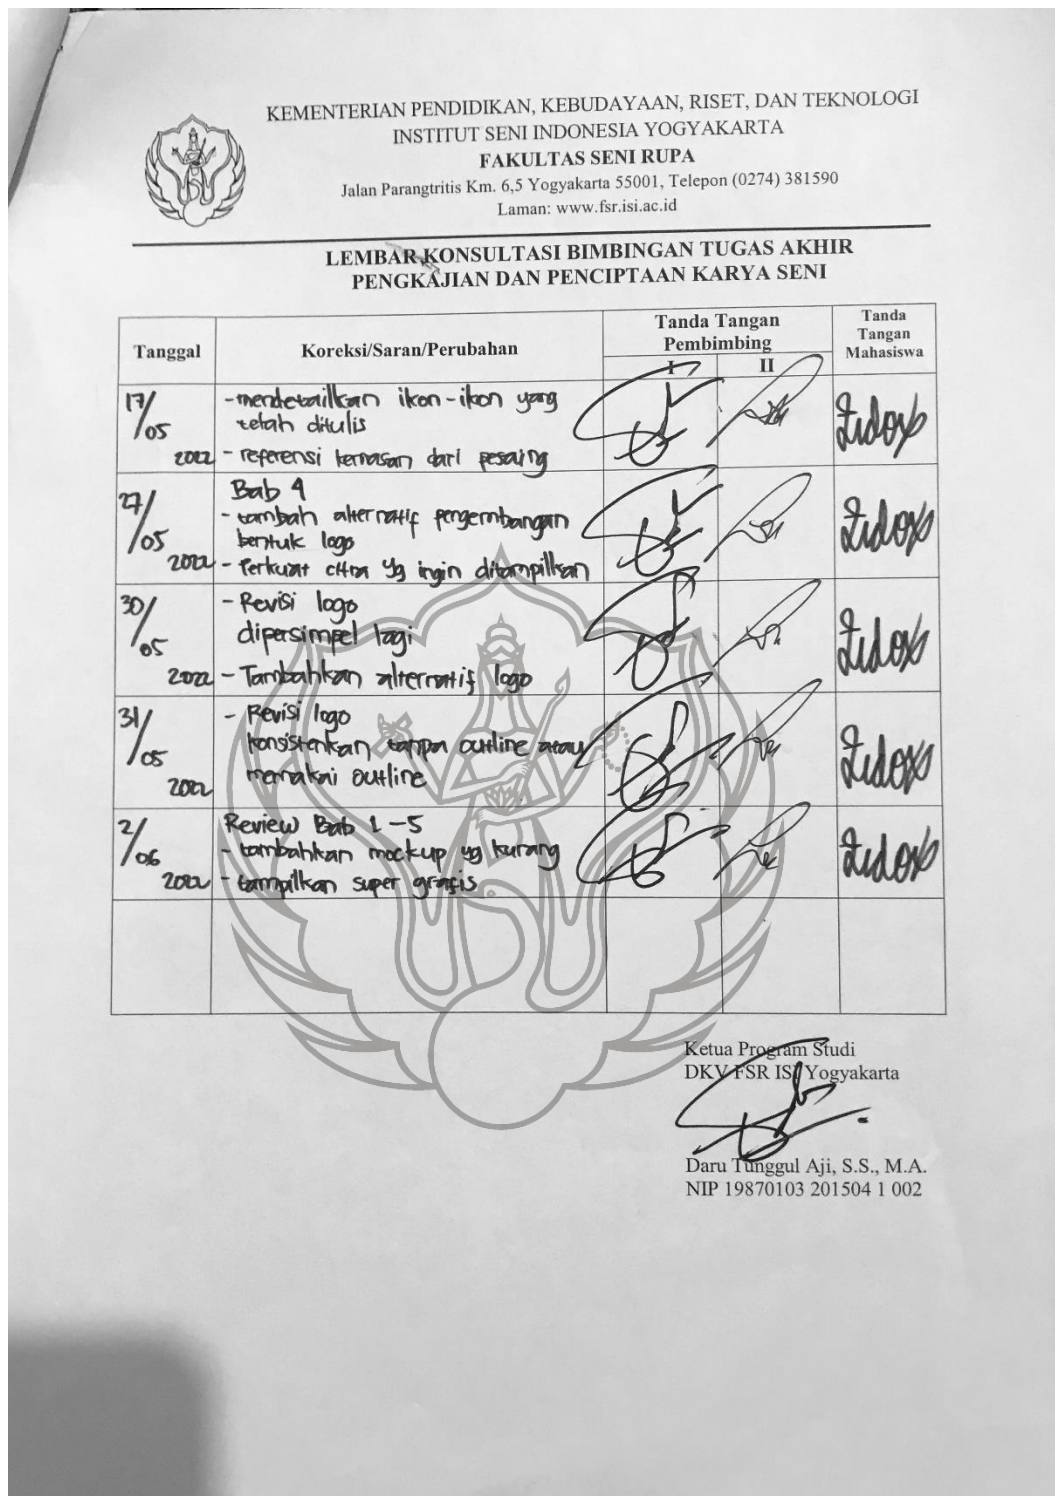 KEMENTERIAN PENDIDIKAN, KEBUDAYAAN, RISET, DAN TEKNOLOGI
INSTITUT SENI INDONESIA YOGYAKARTA
FAKULTAS SENI RUPA
Jalan Parangtritis Km. 6,5 Yogyakarta 55001, Telepon (0274) 381590
Laman: www.fsr.isi.ac.id
LEMBAR KONSULTASI BIMBINGAN TUGAS AKHIR
PENGKAJIAN DAN PENCIPTAAN KARYA SENI
Tanggal
Koreksi/Saran/Perubahan
Tanda Tangan
Pembimbing
I
II
Tanda
Tangan
Mahasiswa
17/05
2022
- mendetailkan ikon-ikon yang
telah ditulis
- referensi kemasan dari pesaing
27/05
2022
Bab 4
- tambah alternatif pengembangan
bentuk logo
- Perkuat citra yg ingin ditampilkan
30/05
2022
- Revisi logo
dipersimpel lagi
- Tambahkan alternatif logo
31/05
2022
- Revisi logo
konsistenkan tanpa outline atau
memakai outline
2/06
2022
Review Bab 1-5
- tambahkan mockup yg kurang
- tampilkan super grafis
Ketua Program Studi
DKV FSR ISI Yogyakarta
Daru Tunggul Aji, S.S., M.A.
NIP 19870103 201504 1 002